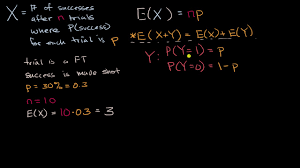 X = # of successes
after n trials
where P(success)
for each trial is p
trial is a FT
success is made shot
p = 30% = 0.3
n = 10
E(X) = 10 · 0.3 = 3
E(X) = np
*E(X+Y) = E(X) + E(Y)
Y: P(Y=1) = p
P(Y=0) = 1 - p